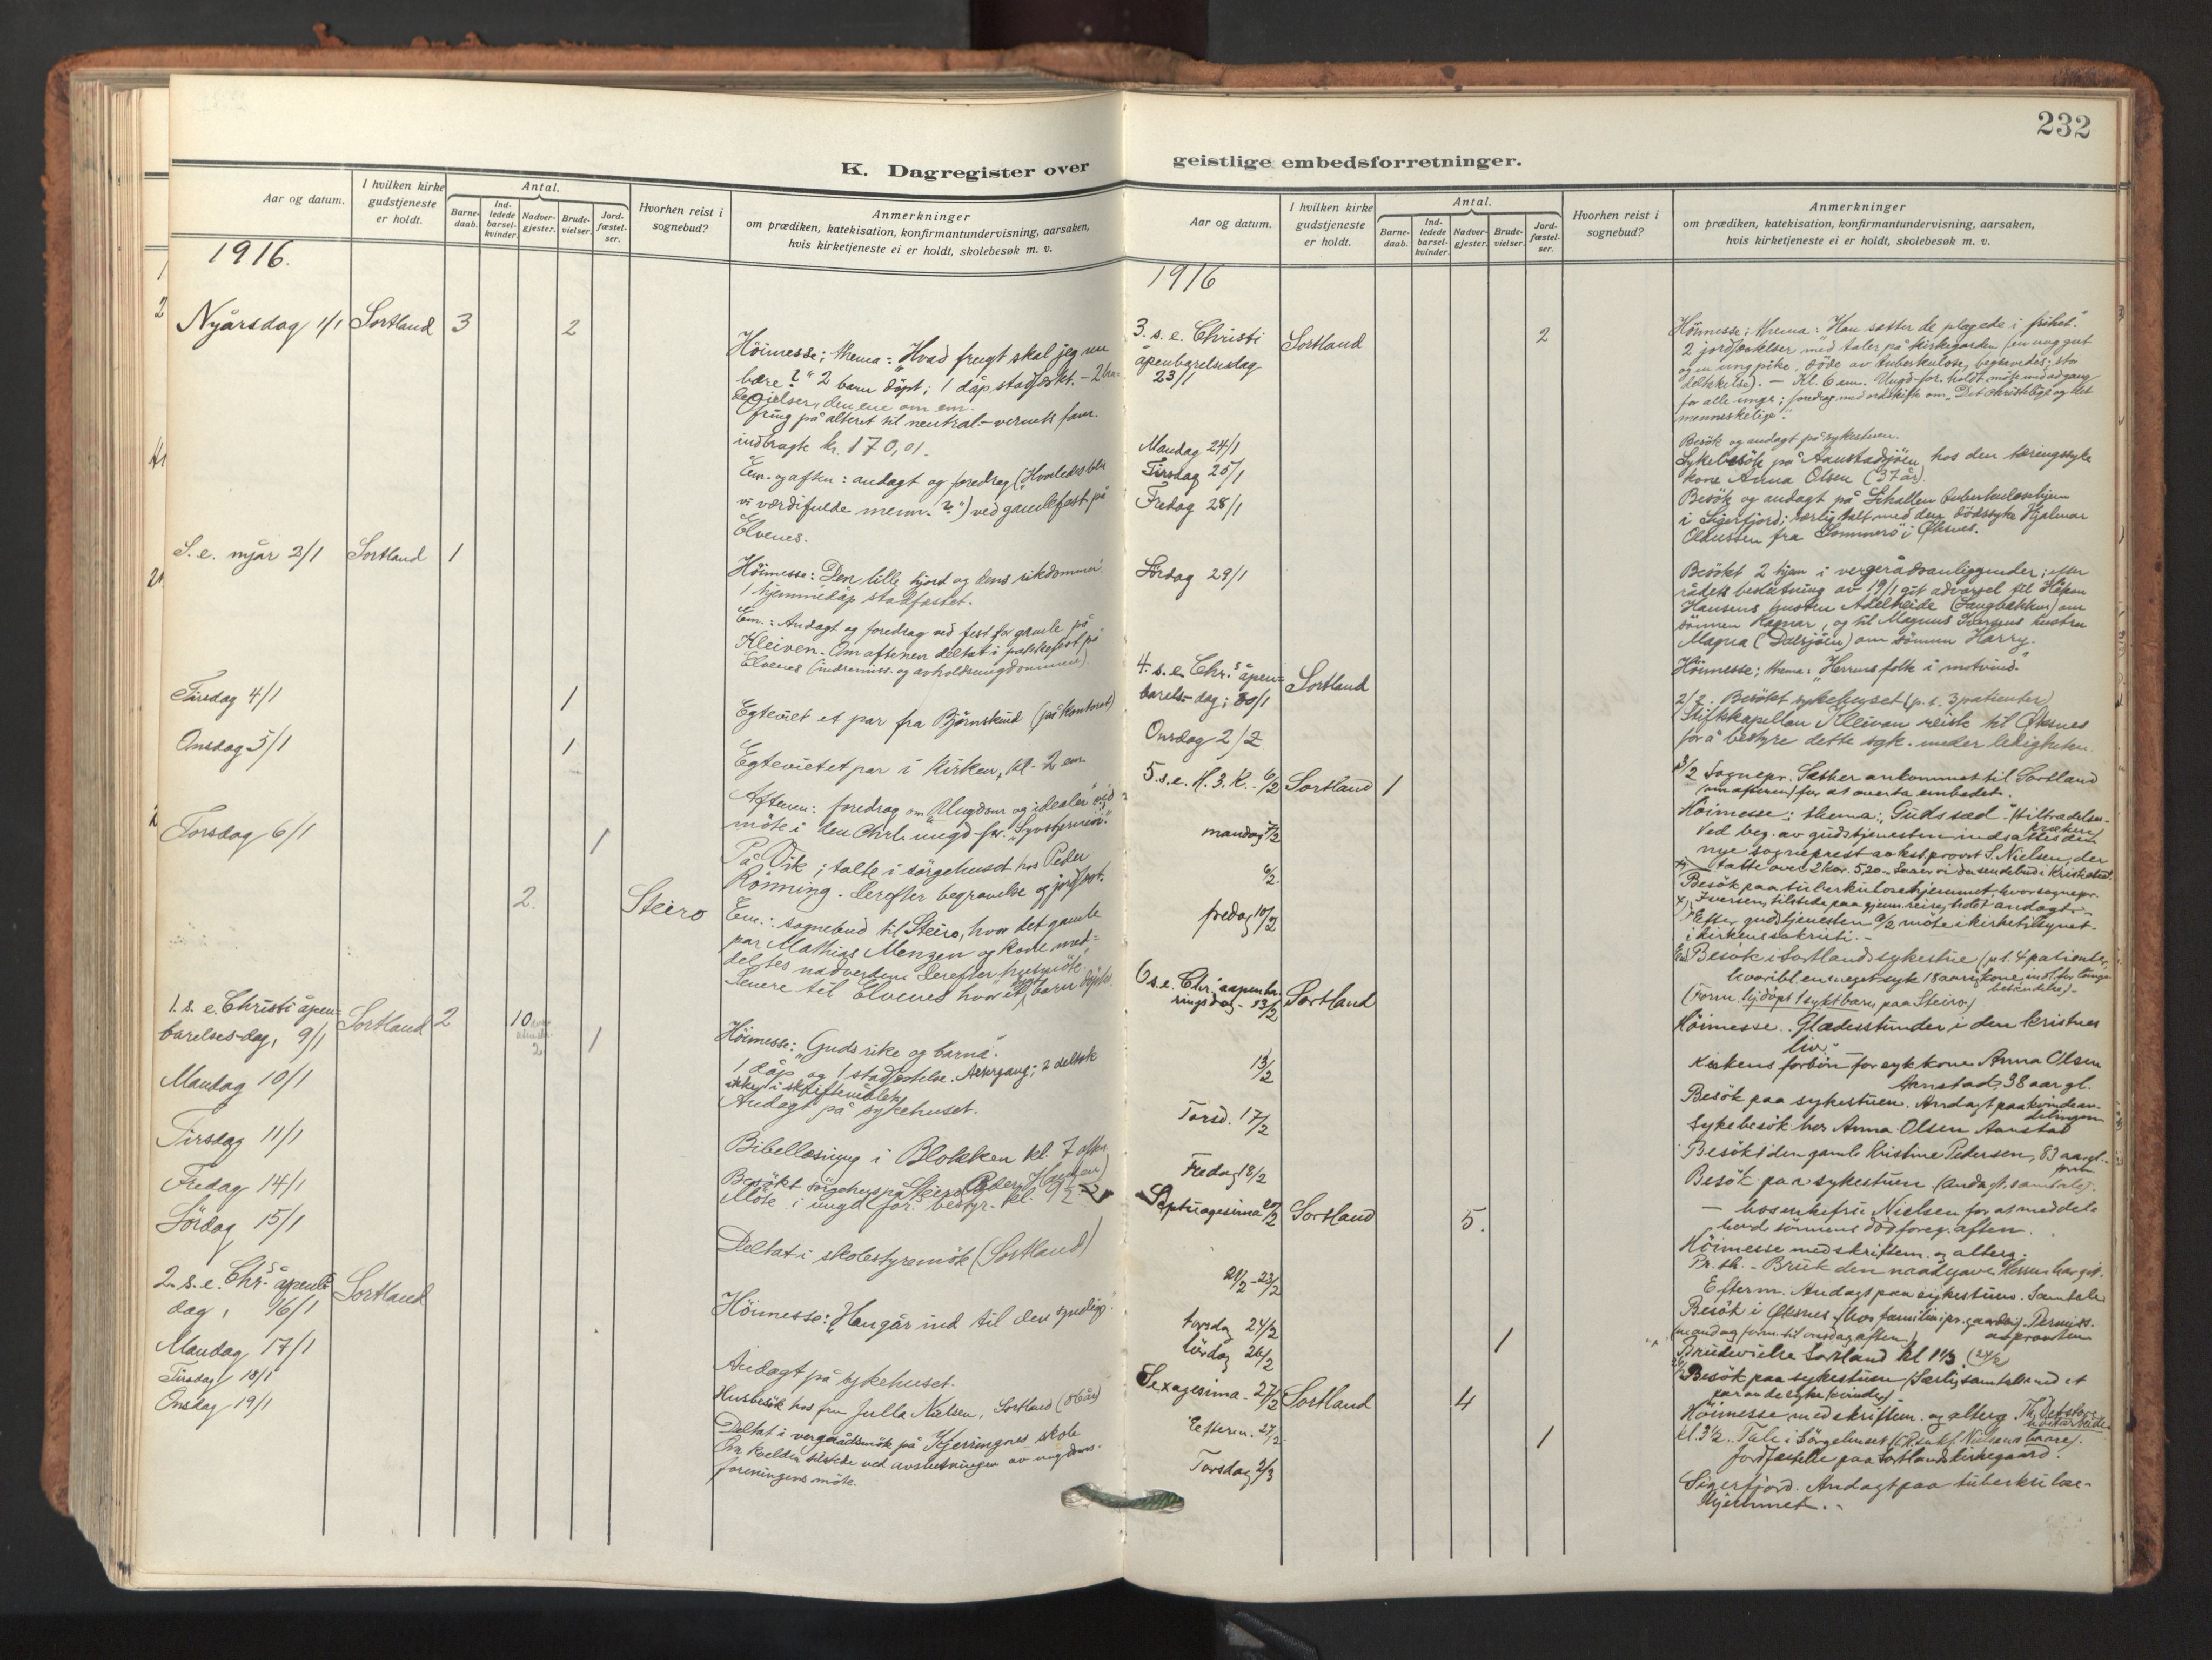 232
K. Dagregister over
geistlige embedsforretninger.
Aar og datum.
I hvilken kirke
gudstjeneste
er holdt.
Antal.
Barne-
daab.
Ind-
ledede
barsel-
kvinder.
Nadver-
gjester.
Brude-
vielser.
Jord-
fæstel-
ser.
Hvorhen reist i
sognebud?
Anmerkninger
om prædiken, katekisation, konfirmantundervisning, aarsaken,
hvis kirketjeneste ei er holdt, skolebesøk m. v.
1916.
Nyårsdag 1/1 Sortland 3 2
Höimesse; thema: "Hvad frugt skal jeg nu
bære?" 2 barn döpt; 1 dåp stadfæstet. - 2 bru-
devielser, den ene om em.
Ofring på alteret til nøutral.-vernets fam.
indbragte kr. 170,01.
Em. og aften: andagt og foredrag ("Hvorledes bli
vi værdifulde menn.?") ved gamlefest på
Elvenes.
S. e. nyår 2/1 Sortland 1
Höimesse: Den lille hjord og dens rikdommer.
1 hjemmedåp stadfæstet.
Em.: Andagt og foredrag ved fest for gamle på
Kleiven. Om aftenen deltat i fest på
Elvenes (indremiss. og avholdsungdommen).
Tirsdag 4/1 1
Egteviet et par fra Björnskind (på kontoret)
Onsdag 5/1 1
Egteviet et par i kirken, kl. 2 em.
Aftenen: foredrag om "Ungdom og idealer" ved
möte i den Chrl. ungd-for. "Syvstjernen".
Torsdag 6/1 1
På Vik; talte i sörgehuset hos Peder
Rönning. Derefter begravelse og jordfæst.
2. Steiro
Em.: sognebud til Steiro, hvor det gamle
par Mathias Menzen og kone med-
deltes nadverden. Derefter husmöte.
Senere til Elvenes hvor et sykt barn döptes.
1. s. e. Christi åpen-
barelses-dag, 9/1 Sortland 2 10 2 1
Höimesse: "Guds rike og barna".
1 dåp og 1 stadfæstelse. Altergang; 2 deltok
ikke i skriftemålet.
Mandag 10/1
Andagt på sykehuset.
Tirsdag 11/1
Bibellæsning i Blokken kl. 7 aften
Fredag 14/1
Besökt sörgehus på Steiro (Peder Hansen)
Möte i ungd.for. bestyr. kl. 9 1/2
Lördag 15/1
Deltat i skolestyremöte (Sortland)
2. s. e. Chr.s åpenb.
dag, 16/1 Sortland
Höimesse: "Han går ind til den syndig."
Mandag 17/1
Andagt på sykehuset.
Tirsdag 18/1
Husbesök hos fru Julla Nielsen, Sortland (86 år)
Onsdag 19/1
Deltat i vergerådsmöte på Kjerringnes skole
Om kvelden tilstede ved avslutningen av ungdoms-
foreningens möte.
Aar og datum.
I hvilken kirke
gudstjeneste
er holdt.
Antal.
Barne-
daab.
Ind-
ledede
barsel-
kvinder.
Nadver-
gjester.
Brude-
vielser.
Jord-
fæstel-
ser.
Hvorhen reist i
sognebud?
Anmerkninger
om prædiken, katekisation, konfirmantundervisning, aarsaken,
hvis kirketjeneste ei er holdt, skolebesøk m. v.
1916
3. s. e. Christi
åpenbarelsesdag
23/1 Sortland 2
Höimesse; thema: "Han sætter de plagede i frihet."
2 jordfæstelser med taler på kirkegården (en ung gut
og en ung pike, döde av tuberkulose, begravedes; stor
deltakelse). - Kl. 6 em. Ungd-for. holdt möte med adgang
for alle unge; foredrag med ordskifte om "Det christelige og det
menneskelige".
Mandag 24/1
Besök og andagt på sykestuen.
Tirsdag 25/1
Sykebesök på Aanstadsjöen hos den tæringssyke
kone Anna Olsen (37 år).
Fredag 28/1
Besök og andagt på tuberkulosehjem
i Sigerfjord; særlig talt med den dödssyke Hjalmar
Olaussen fra Sommerö i Öksnes.
Lördag 29/1
Besökt 2 hjem i vergerådsanliggender; efter
rådets beslutning av 19/1 git advarsel til Håkon
Hansens hustru Adelheide (Langbakken) om
sönnen Ragnar, og til Magnus Iversens hustru
Magna (Dalsjöen) om sönnen Harry.
4. s. e. Chr.s åpen-
barels-dag; 30/1 Sortland
Höimesse; thema: "Herrens folk i motvind."
Onsdag 2/2
2/2. Besökt sykehuset (p. t. 3 patienter)
Stiftskapellan Kleivan reiste til Öksnes
for å bestyre dette sgk. under ledigheten.
5. s. e. H. 3. K. 6/2 Sortland 1
3/2 Sognepr. Sæther ankommet til Sortland
(om aftenen) for at overta embedet.
Höimesse; thema: "Guds sæd" (tiltrædelses-
præken)
Ved beg. av gudstjenesten indsattes den
nye sogneprest av kst. provst S. Nielsen, der
talte over 2 Kor. 5,20.
mandag 7/2
Besök paa tuberkulosehjemmet, hvor sognepr.
Iversen, tilstede paa gjennreise, holdt andagt.
6/2
Efter gudstjenesten 6/2 möte i kirketilsynet
i kirkens sakristi.
fredag 10/2
Besök i Sortland sykestue (p.t. 4 patienter,
hvoribl. en meget syk 18 aarig kone
(Form. hj.döpt 1 sykt barn paa Steiro)
6 s. e. Chr. aapenba-
ringsdag - 13/2 Sortland
Höimesse. Glædesstunder i den kristnes
liv.
Kirkens forbön for syk kone Anna Olsen
Aanstad, 38 aar gl.
13/2
Besök paa sykestuen. Andagt paa kvindeav-
delingen
Torsd. 17/2
Sykebesök hos Anna Olsen Aanstad
Besökt den gamle Kristine Pedersen, 83 aar gl.
Fredag 18/2
Besök paa sykestuen (andagt, samtale).
- hos enkefru Nielsen for at meddele
hend sönnens död foreg. aften.
Septuagesima 20/2 Sortland 5.
Höimesse med skriftem. og alterg.
Pr. th. - Bruk den naadegave Herren har git.
Efterm. Andagt paa sykestuen. Samtale
21/2 - 23/2
Besök i Öksnes (hos familien i pr. gaarden). Permiss.
av provsten
(mandag form. til onsdag aften)
torsdag 24/2 1
Brudevielse Sortland kl 1 1/2. (24/2)
lördag 26/2
26/2 Besök paa sykestuen (Særlig samtale med et
par av de syke kvinder)
Sexagesima - 27/2 Sortland 4
Höimesse med skriftem. og alterg. Th. Det store
Efterm. 27/2 1
kl. 3 1/2. Tale i Sörgehuset
Jordfæstelse paa Sortlands kirkegaard.
Torsdag 2/3
Sigerfjord. Andagt paa tuberkulose-
hjemmet.